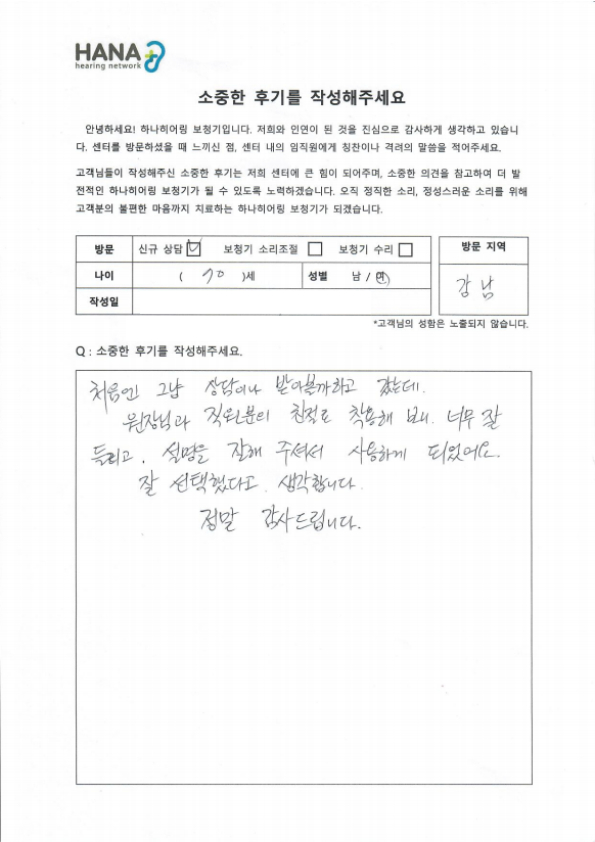 HANA
hearing network
소중한 후기를 작성해주세요
안녕하세요! 하나히어링 보청기입니다. 저희와 인연이 된 것을 진심으로 감사하게 생각하고 있습니
다. 센터를 방문하셨을 때 느끼신 점, 센터 내의 임직원에게 칭찬이나 격려의 말씀을 적어주세요.
고객님들이 작성해주신 소중한 후기는 저희 센터에 큰 힘이 되어주며, 소중한 의견을 참고하여 더 발
전적인 하나히어링 보청기가 될 수 있도록 노력하겠습니다. 오직 정직한 소리, 정성스러운 소리를 위해
고객분의 불편한 마음까지 치료하는 하나히어링 보청기가 되겠습니다.
방문 신규 상담 보청기 소리조절 보청기 수리
나이 ( 70 )세 성별 남 / 여
작성일
방문 지역
강남
*고객님의 성함은 노출되지 않습니다.
Q : 소중한 후기를 작성해주세요.
처음엔 그냥 상담이나 받아볼까하고 갔는데.
원장님과 직원분의 친절로 착용해 보니. 너무 잘
들리고. 설명을 잘해 주셔서 사용하게 되었어요.
잘 선택했다고 생각합니다.
정말 감사드립니다.